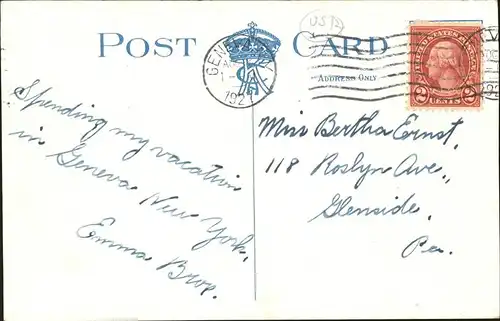 POST CARD
ADDRESS ONLY
GENEVA
192
UNITED STATES
2 CENTS 2
Spending my vacation
in Geneva New York,
Emma Bros.
Miss Bertha Ernst,
118 Roslyn Ave.,
Glenside,
Pa.